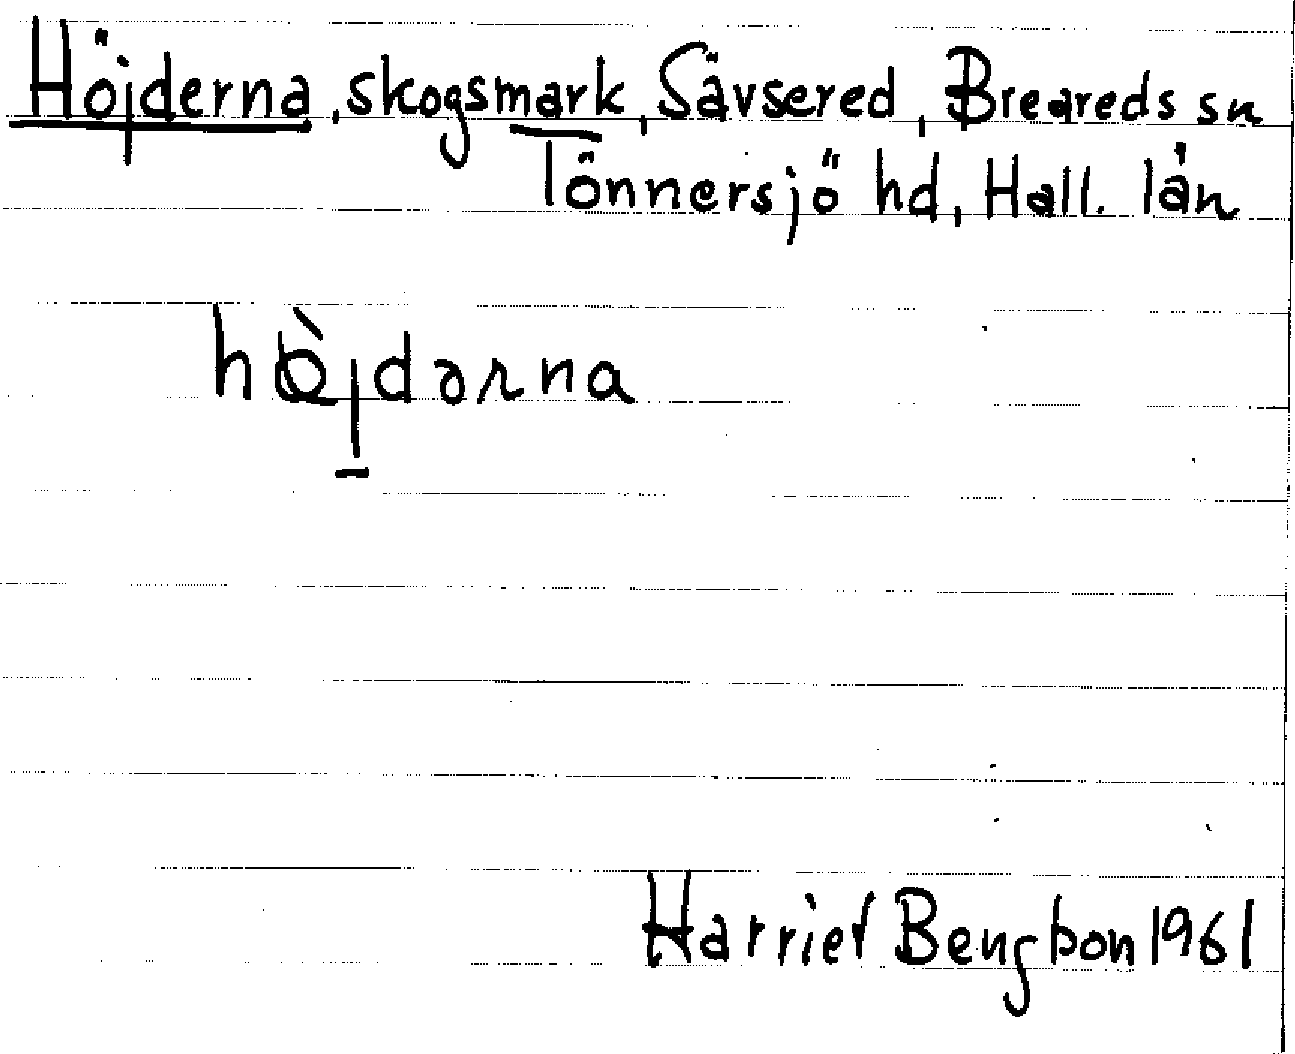 Höjderna, skogsmark, Sävsered, Breareds sn
Tönnersjö hd, Hall. län
hö̀jdərna
Harriet Bengtson 1961